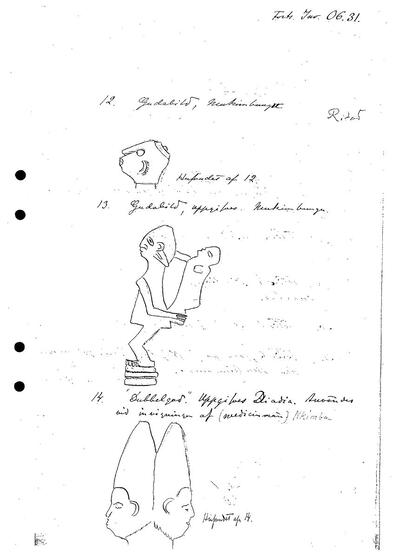 Forts. Inv. 06.31.
12. Gudabild,
Ritad
Hufvudet af 12.
13. Gudabild, uppgifves
14. "Dubbelgud." Uppgifves Användes
vid invigningen af (medicinmän) Nkimba
Hufvudet af 14.